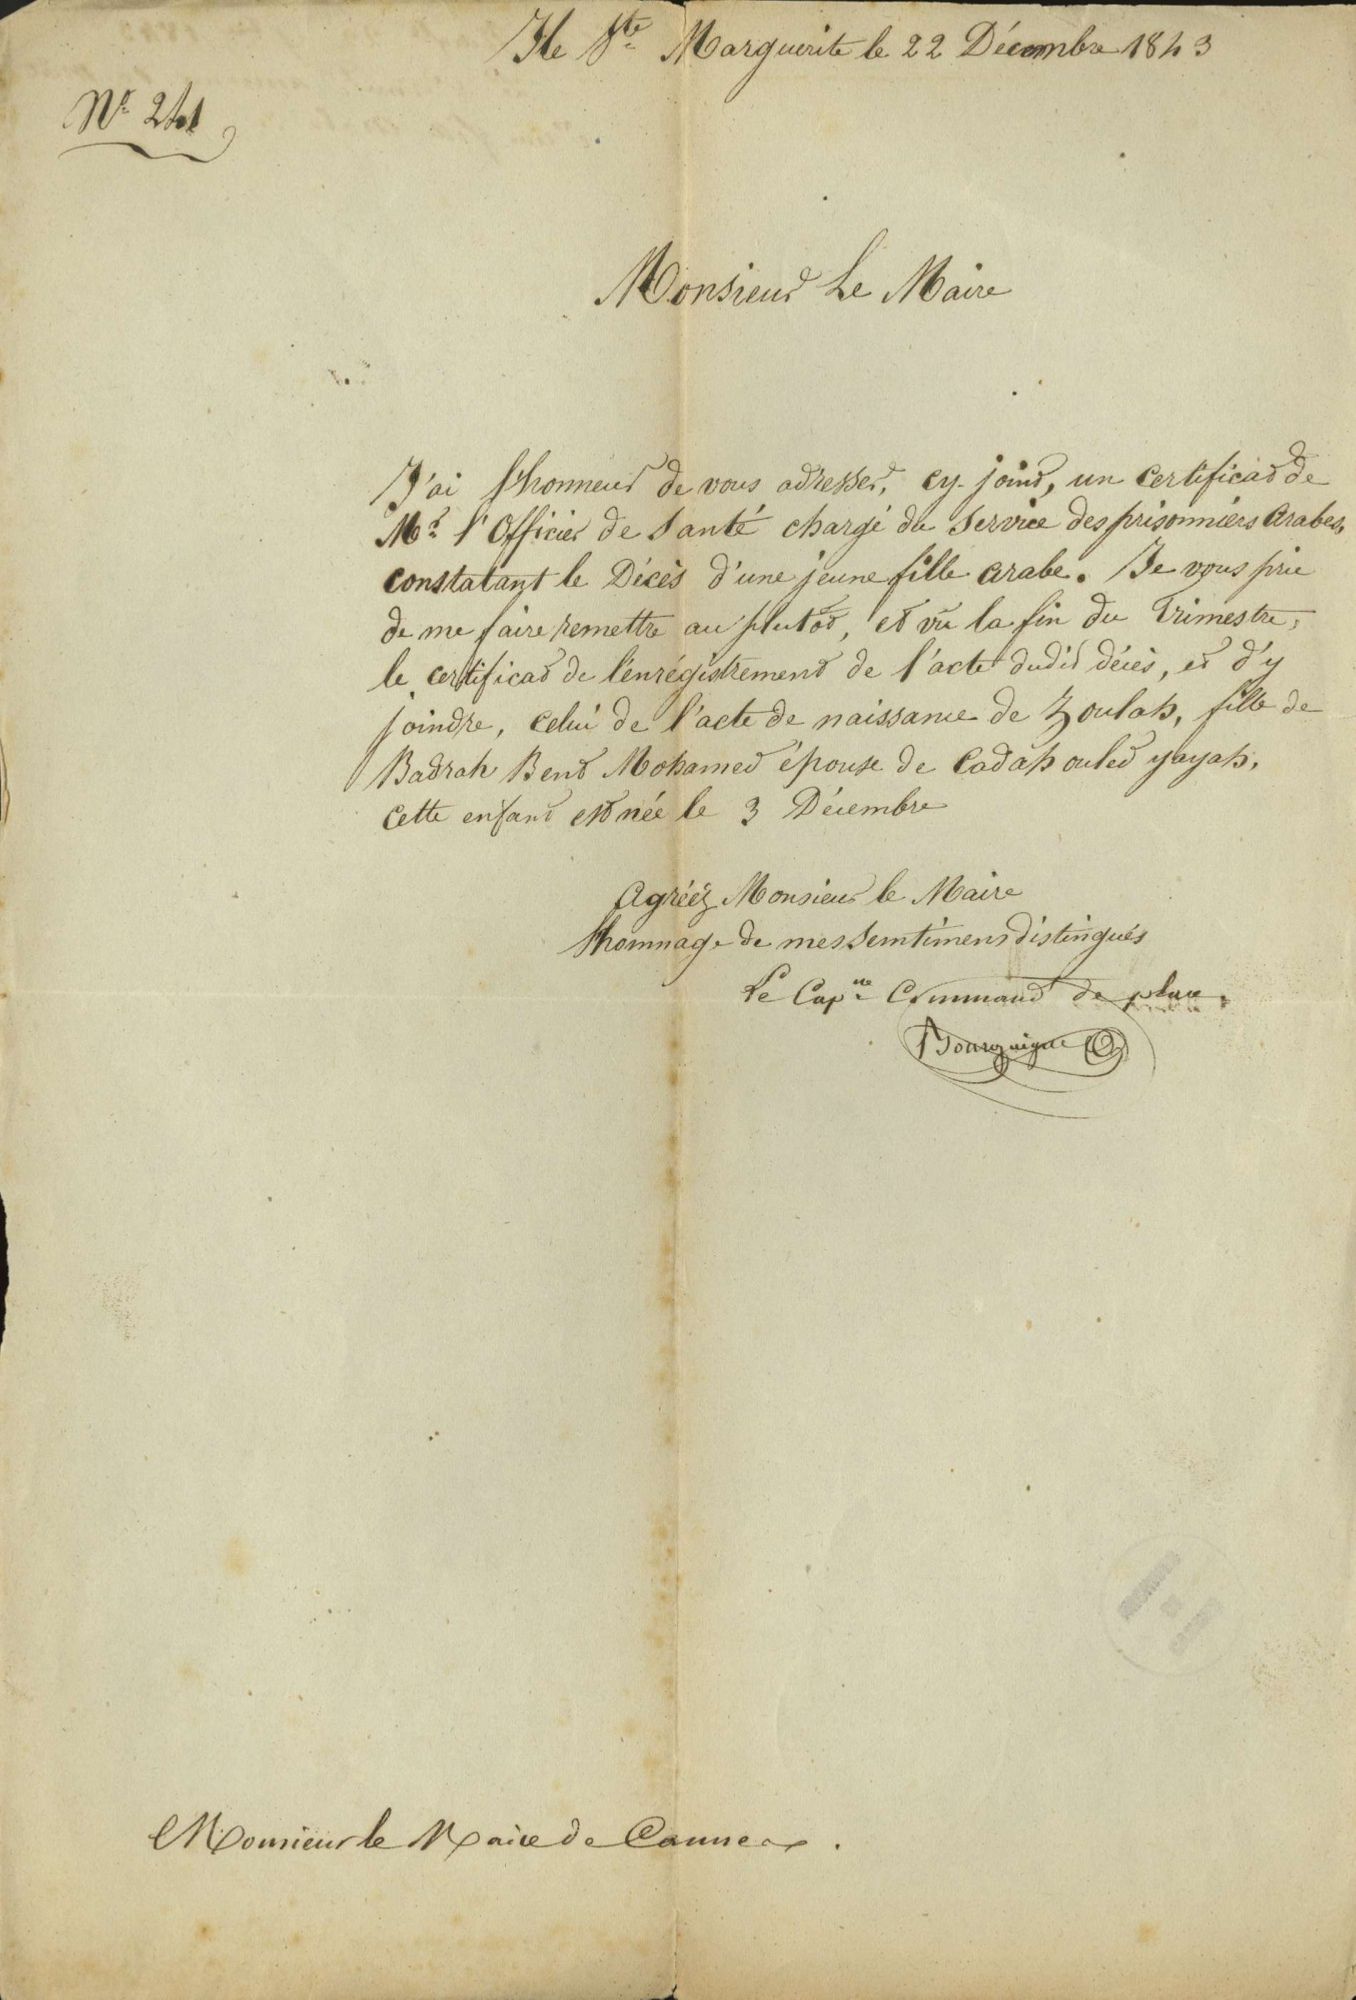 Ile Ste Marguerite le 22 Décembre 1843
No 241
Monsieur Le Maire
J'ai l'honneur de vous adresser, cy-joint, un certificat de
Mr l'Officier de Santé chargé du service des prisonniers arabes,
constatant le Décès d'une jeune fille arabe. Je vous prie
de me faire remettre au plutot, et vû la fin du Trimestre,
le certificat de l'enrégistrement de l'acte dudit décès, et d'y
joindre, celui de l'acte de naissance de Zoulah, fille de
Badrah Bent Mohamed épouse de Cadah ouled yayah,
cette enfant est née le 3 Décembre
Agréez Monsieur le Maire
l'hommage de mes sentimens distingués
Le Capne Command de place,
Bourguigne
Monsieur le Maire de Cannes.